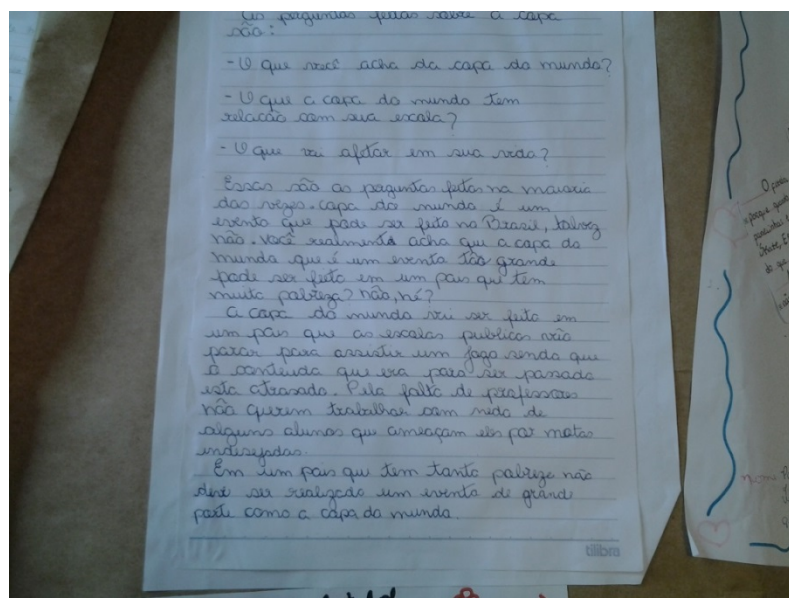 As perguntas feitas sobre a copa
são:
- O que você acha da copa do mundo?
- O que a copa do mundo tem
relacão com sua escola?
- O que vai afetar em sua vida?
Essas são as perguntas feitas na maioria
das vezes. copa do mundo é um
evento que pode ser feito no Brasil, talvez
não. você realmente acha que a copa do
mundo que é um evento tão grande
pode ser feito em um pais que tem
muito pobreza? não, né?
A copa do mundo vai ser feito em
um pais que as escolas publicas vão
parar para assistir um jogo sendo que
o conteúdo que era para ser passado
esta atrasado. Pela falta de professores
não querem trabalhar com medo de
alguns alunos que ameaçam eles por notas
indesejadas.
Em um pais que tem tanto pobreza não
deve ser realizado um evento de grande
porte como a copa do mundo.
tilibra
O pode
porque
do que